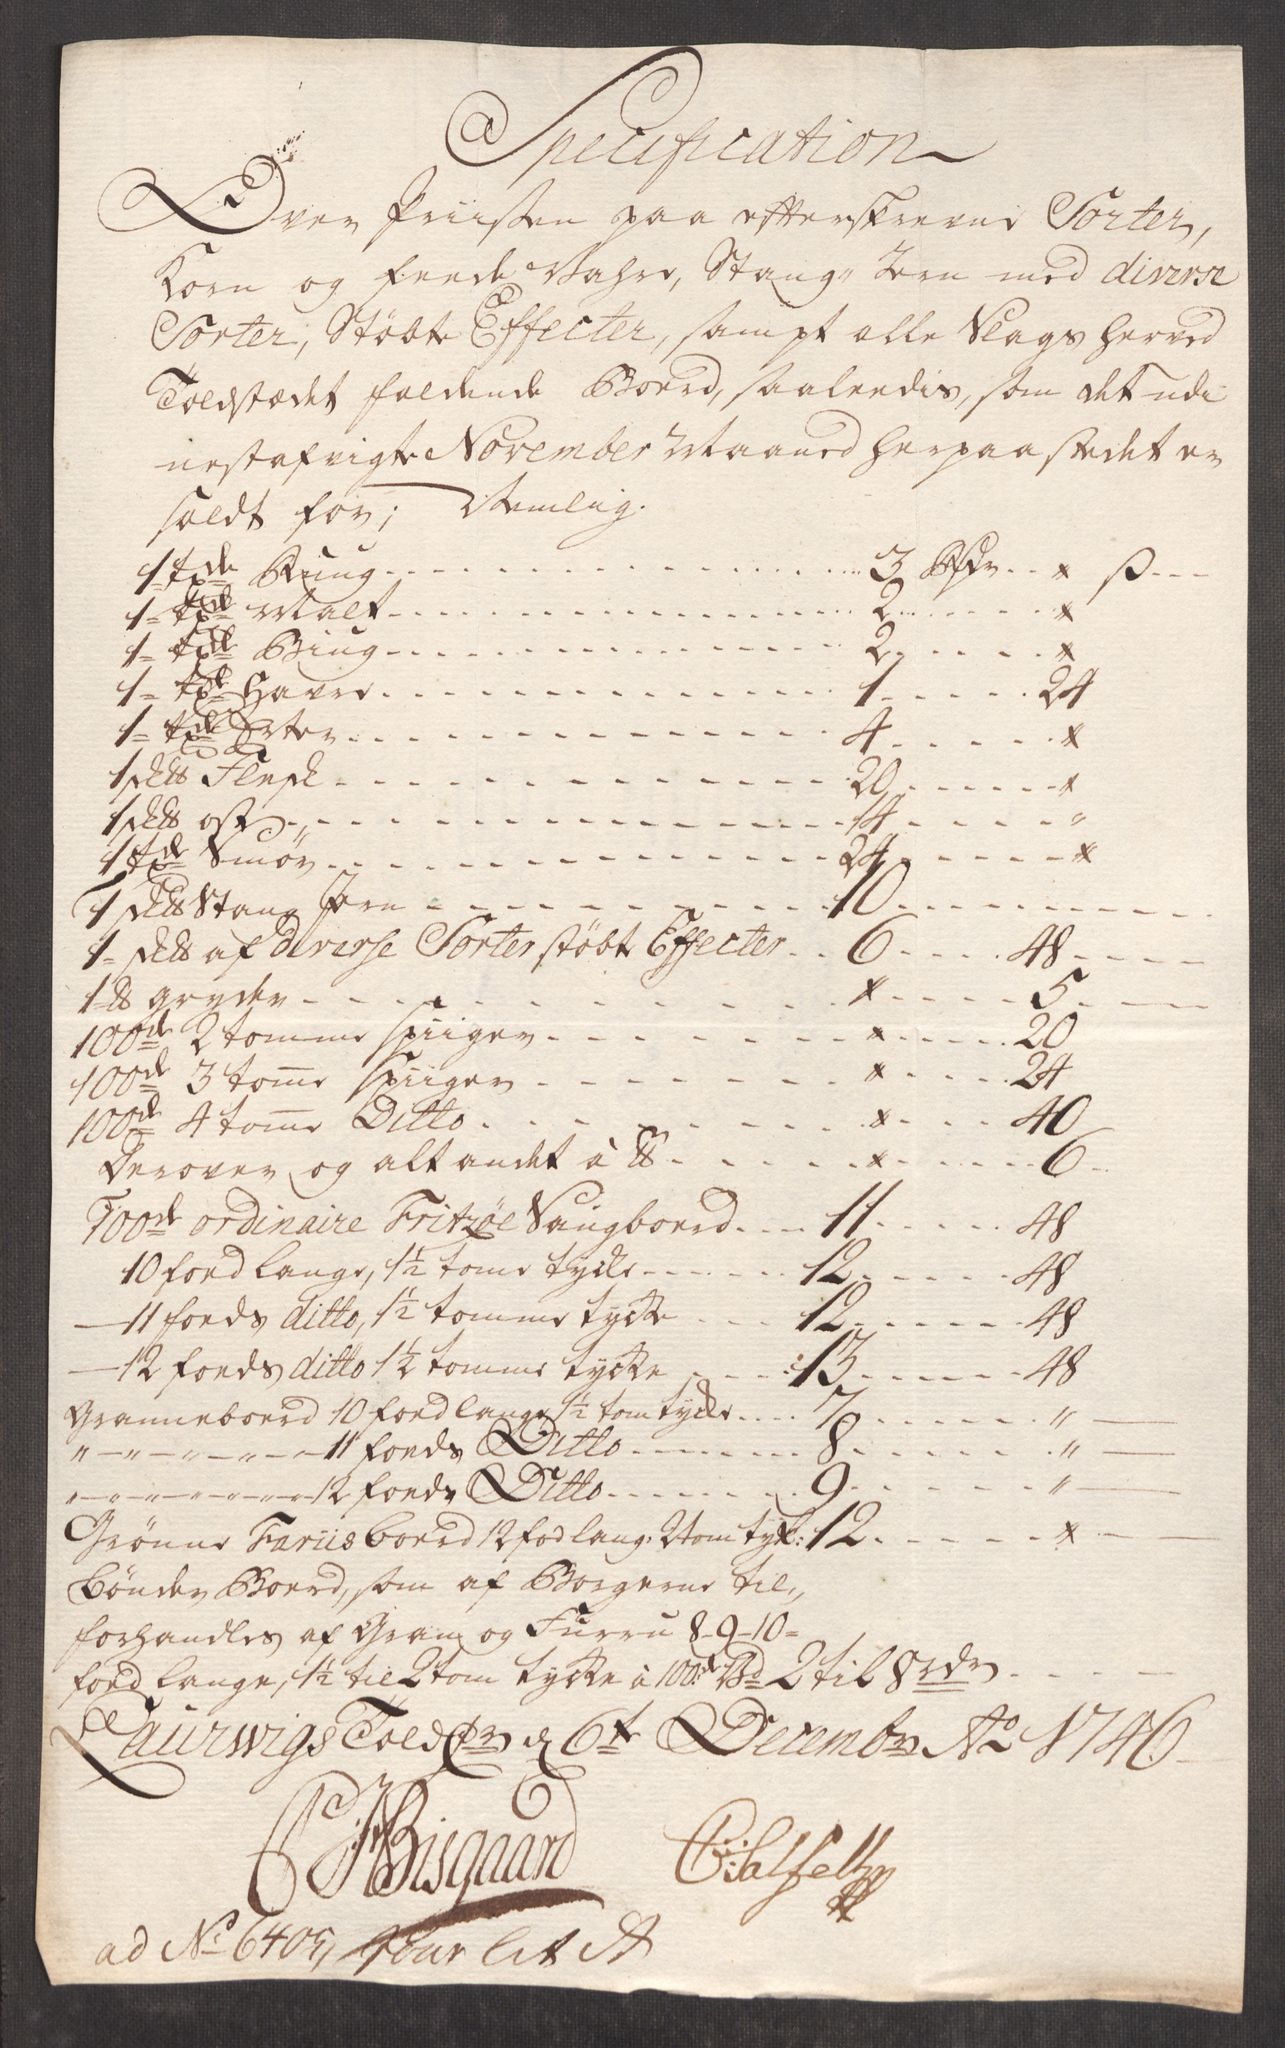 Specification
Over Priisen paa efterskrevne Sorter,
Korn og feede Vahre, Stang Jern med diverse
Sorter, Støbte Effecter, sampt alle Slags herved
Toldstædet faldende Boerd, saaleedis, som det udi
nestafvigte November Maaned her paa stedet er
soldt for; Nemlig.
1 tde Rug 3 Rdr x ß
1 tde Malt 2 x
1 tde Biug 2 x
1 tde Havre 1 24
1 tde Erter 4 x
1 sk℔ Flesk 20 x
1 sk℔ ost 14 "
1 tde Smør 24 x
1 sk℔ Stang Jern 10
1 sk℔ af diverse Sorter støbte Effecter 6 48
1 ℔ gryder x 5
100de 2 tomme Spiiger x 20
100de 3 tom̅e Spiiger x 24
100de 4 tom̅e Ditto x 40
Derover og alt andet à ℔ x 6
100de ordinaire Fritzøe Saugboerd 11 48
10 foed lange, 1½ tome tycke 12 48
11 foeds ditto, 1½ tomme tycke 12 48
12 foeds ditto 1½ tomme tycke 13 48
Granneboerd 10 foed lange 1½ tom tycke 7 "
" " " " " 11 foeds Ditto 8 "
" " " " " " 12 foeds Ditto 9 "
Grønne boerd 12 fod lang. 2 tom tyk: 12 x
Bønder Boerd, som af Borgerne til,,
forhandles af Gran og Furru 8-9-10=
foed lange, 1½ til 2 tom tycke à 100de Bd 2 til 8 rdr
Laurwigs Told d 6t Decembr Ao 1746
Bisgaard
ad No 6405, lit A